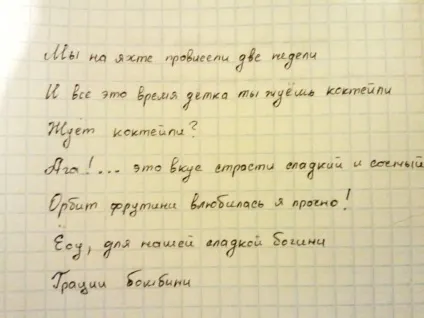 Мы на яхте провисели две недели
И все это время детка ты ждёшь коктейли
Ждёт коктейли?
Ага!... это вкус страсти сладкий и сочный
Орбит фрутини влюбилась я прочно!
Ёоу, для нашей сладкой богини
Грации бомбини